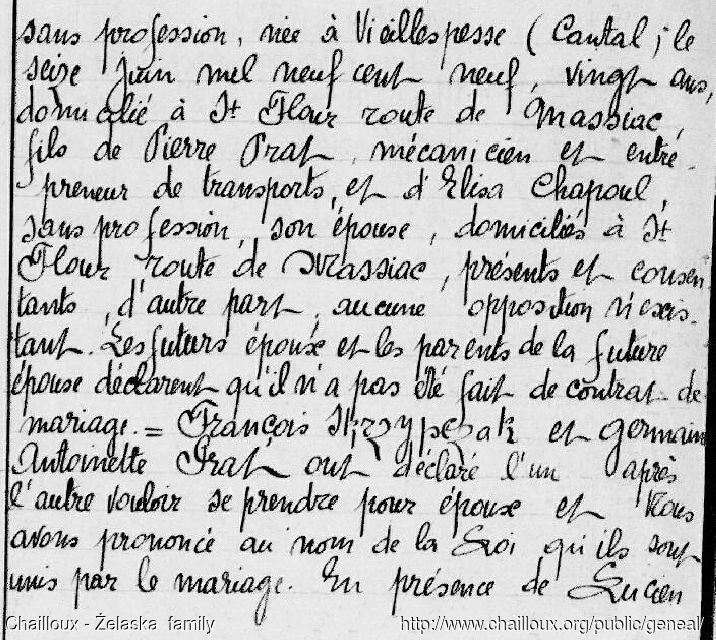 sans profession, née à Vieillespesse (Cantal; le
seize juin mil neuf cent neuf, vingt ans,
domicilié à St Flour route de Massiac,
fils de Pierre Prat, mécanicien et entre
preneur de transports, et d'Elisa Chapoul,
sans profession, son épouse, domiciliés à St
Flour route de Massiac, présents et consen
tants, d'autre part, aucune opposition n'exis-
tant. Les futurs époux et les parents de la future
épouse déclarent qu'il n'a pas été fait de contrat de
mariage. = François Skrzypczak et germain
Antoinette Prat, ont déclaré l'un après
l'autre vouloir se prendre pour époux et Nous
avons prononcé au nom de la Loi qu'ils sont
unis par le mariage. En présence de Lucien
Chailloux - Żelaska family
http://www.chailloux.org/public/geneal/